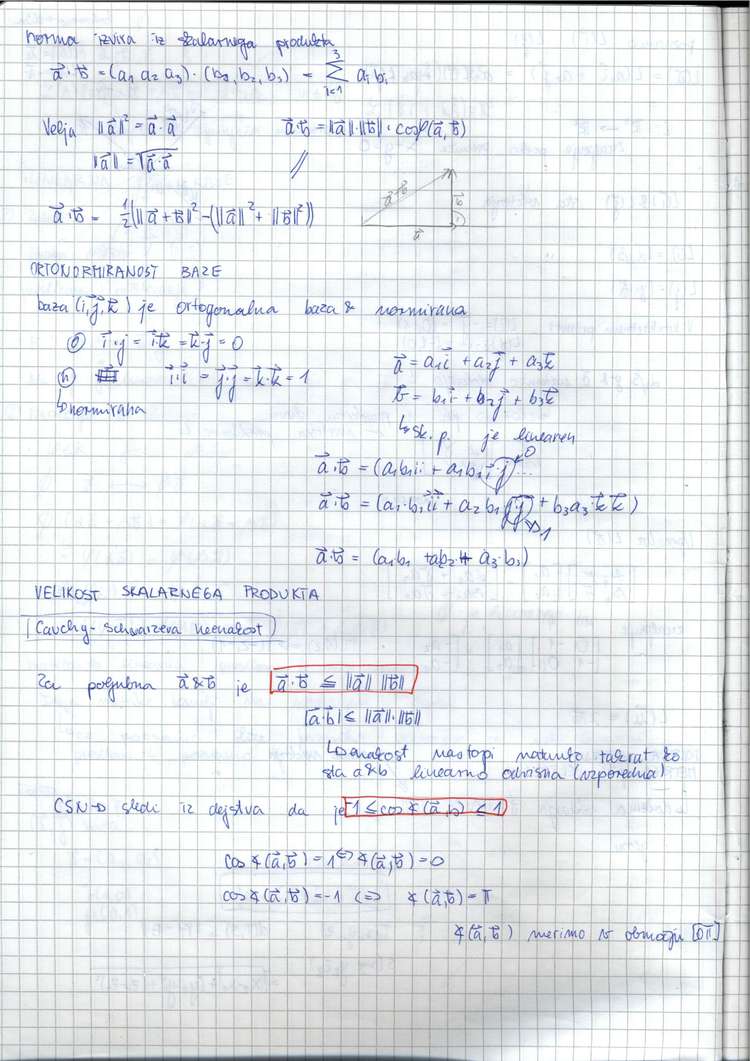 norma izvira iz skalarnega produkta
a⃗·b⃗ = (a₁ a₂ a₃)·(b₁, b₂, b₃) = ∑³ᵢ₌₁ aᵢ bᵢ
Velja ||a⃗||² = a⃗·a⃗ a⃗·b⃗ = ||a⃗||·||b⃗||·cosφ(a⃗, b⃗)
||a⃗|| = √a⃗·a⃗ //
a⃗·b⃗ = ½(||a⃗+b⃗||² - (||a⃗||² + ||b⃗||²))
a⃗+b⃗
b⃗
a⃗
ORTONORMIRANOST BAZE
baza (i⃗, j⃗, k⃗) je ortogonalna baza & normirana
(o) i⃗·j⃗ = i⃗·k⃗ = k⃗·j⃗ = 0
a⃗ = a₁i⃗ + a₂j⃗ + a₃k⃗
(n) i⃗·i⃗ = j⃗·j⃗ = k⃗·k⃗ = 1
b⃗ = b₁i⃗ + b₂j⃗ + b₃k⃗
↳ normirana
↳ sk. p. je linearen
a⃗·b⃗ = (a₁b₁ii + a₁b₂ i⃗·j⃗) ... 0
a⃗·b⃗ = (a₁·b₁ i⃗i⃗ + a₂b₂ j⃗·j⃗ + b₃a₃·k⃗k⃗)
→ 1
a⃗·b⃗ = (a₁b₁ + ab₂ + a₃·b₃)
VELIKOST SKALARNEGA PRODUKTA
Cauchy-Schwarzeva neenakost
Za poljubna a⃗&b⃗ je a⃗·b⃗ ≤ ||a⃗|| ||b⃗||
|a⃗·b⃗| ≤ ||a⃗||·||b⃗||
↳ enakost nastopi natanko takrat ko
sta a&b linearno odvisna (vzporedna)
CSN → sledi iz dejstva da je -1 ≤ cos∢(a⃗, b) ≤ 1
cos∢(a⃗, b⃗) = 1 ⇔ ∢(a⃗, b⃗) = 0
cos∢(a⃗, b⃗) = -1 ⇔ ∢(a⃗, b⃗) = π
∢(a⃗, b⃗) merimo v območju [0π]